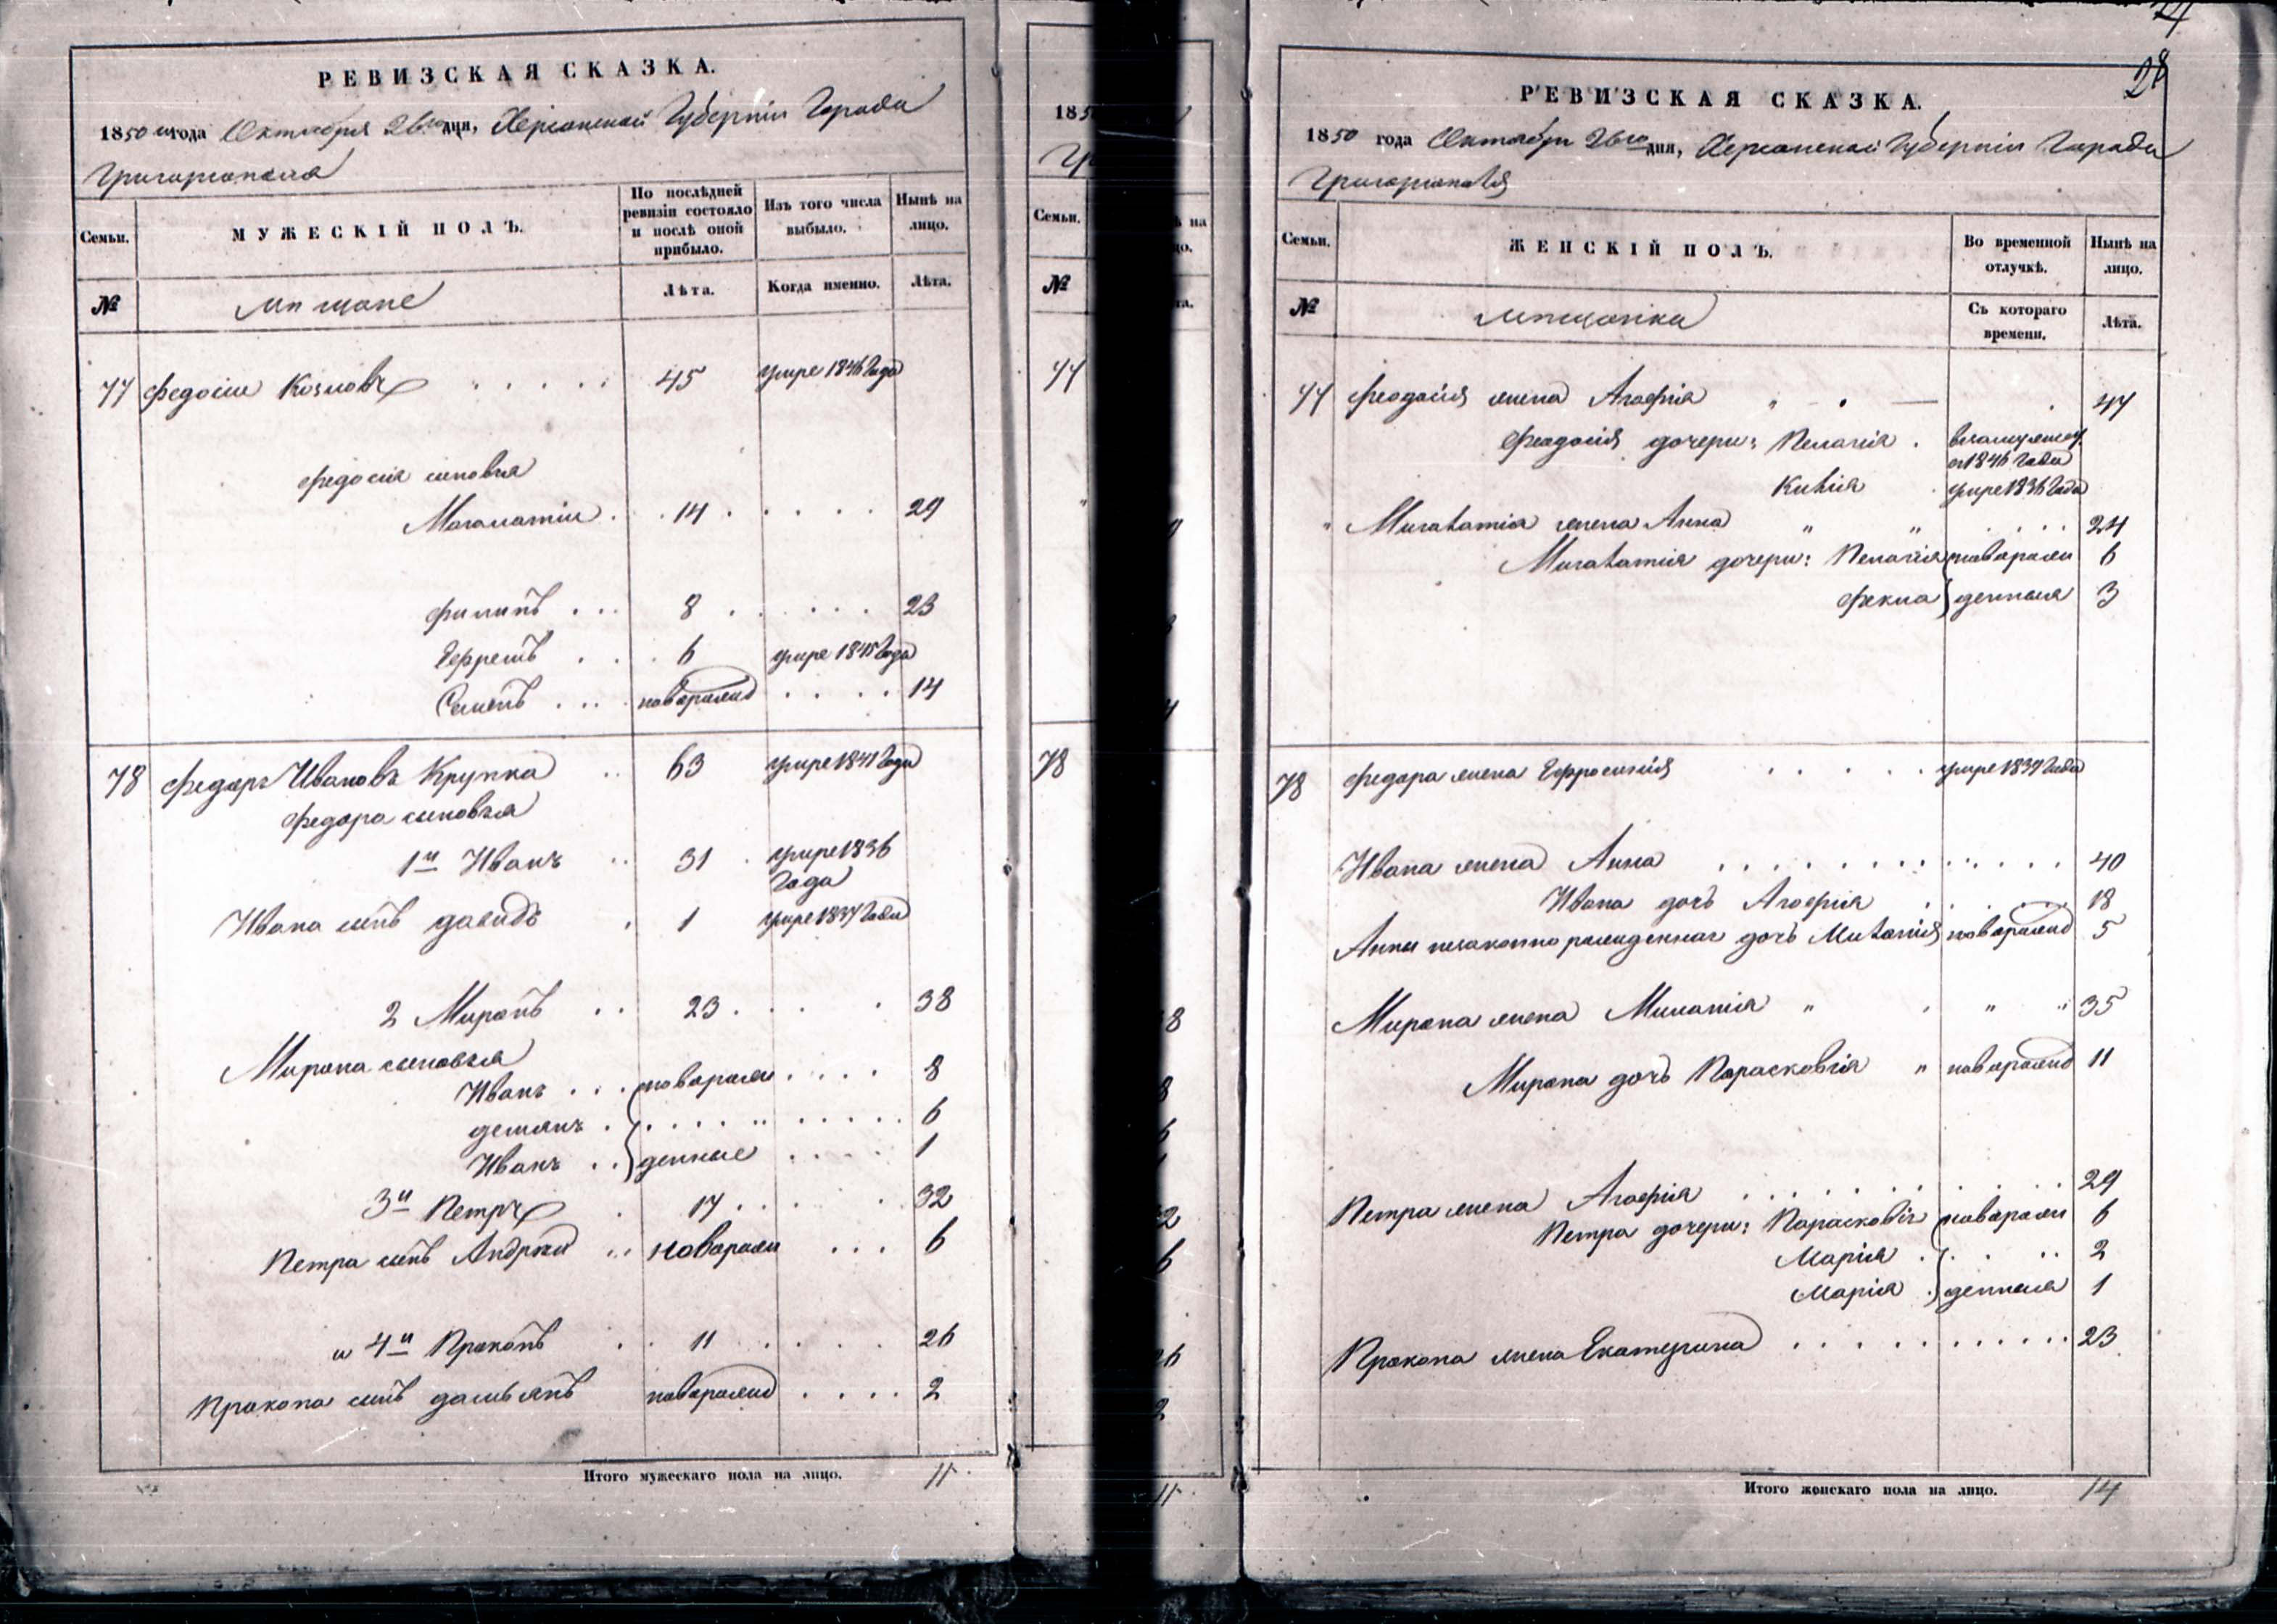 РЕВИЗСКАЯ СКАЗКА.
1850 года Октября 26го дня, Херсонской Губерніи Города
Григоріополя
Семьи. МУЖЕСКІЙ ПОЛЪ. По послѣдней ревизіи состояло и послѣ оной прибыло. Изъ того числа выбыло. Нынѣ на лицо.
№ мещане Лѣта. Когда именно. Лѣта.
77 Федосій Козловъ 45 умре 1846 года
Федосія сыновья
14 29
Филипъ 8 23
Ефремъ 6 умре 1845 года
Семенъ новорожд 14
78 Федоръ Ивановъ Крупка 63 умре 1841 года
Федора сыновья
1й Иванъ 31 умре 1836
года
Ивана сынъ Давидъ 1 умре 1837 года
2 Миронъ 23 38
Мирона сыновья
Иванъ новорож 8
Демянъ 6
Иванъ денные 1
3й Петръ 17 32
Петра сынъ Андрей новорож 6
и 4й Прокопъ 11 26
Прокопа сынъ Дамьянъ новорожд 2
Итого мужескаго пола на лицо. 11
185
Семьи.
№
77
78
24
28
РЕВИЗСКАЯ СКАЗКА.
1850 года Октября 26го дня, Херсонской Губерніи Города
Григоріополя
Семьи. ЖЕНСКІЙ ПОЛЪ. Во временной отлучкѣ. Нынѣ на лицо.
№ мещанки Съ котораго времени. Лѣта.
77 Феодосія жена Агафія 47
Феодосія дочери: Пелагія взамужест
съ 1846 года
умре 1836 года
жена Анна 24
дочери: Пелагія новорож 6
Фекла денныя 3
78 Федора жена Ефросинія умре 1839 года
Ивана жена Анна 40
Ивана дочь Агафія 18
Анны незаконно рожденная дочь новорожд 5
Мирона жена 35
Мирона дочь Парасковія новорожд 11
Петра жена Агафія 29
Петра дочери: Парасковія новорож 6
Марія 2
Марія денныя 1
Прокопа жена Екатерина 23
Итого женскаго пола на лицо. 14